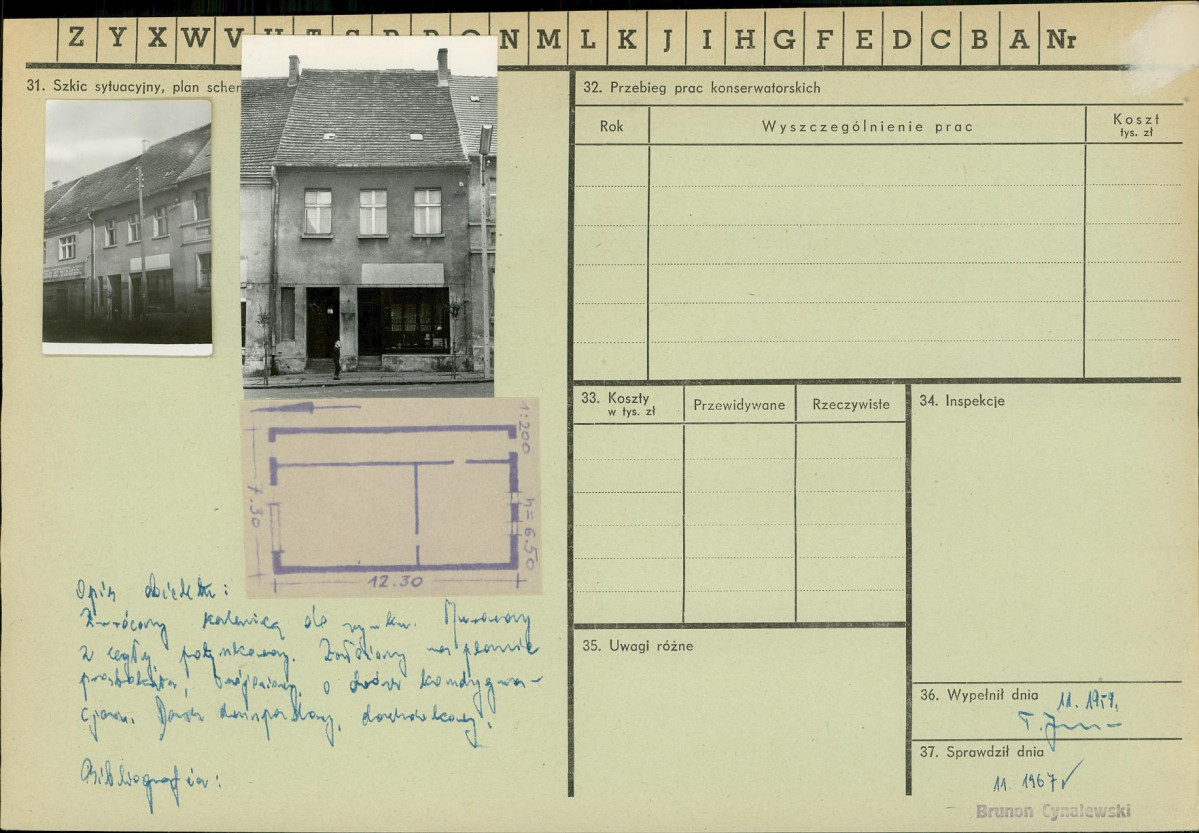 Z Y X W V U T S P O N M L K J I H G F E D C B A Nr
31. Szkic sytuacyjny, plan schem
1:200
7.30
h = 6.50
12.30
Opis obiektu:
Zwrócony kalenicą do rynku. Murowany
z cegły, potynkowany. Założony na planie
prostokąta, o dwóch kondygna-
cjach. Dach dwuspadowy, dachówkowy.
Bibliografia:
32. Przebieg prac konserwatorskich
Rok
Wyszczególnienie prac
Koszt
tys. zł
33. Koszty
w tys. zł
Przewidywane
Rzeczywiste
34. Inspekcje
35. Uwagi różne
36. Wypełnił dnia
11. 1959.
37. Sprawdził dnia
11. 1967
Brunon Cynalewski